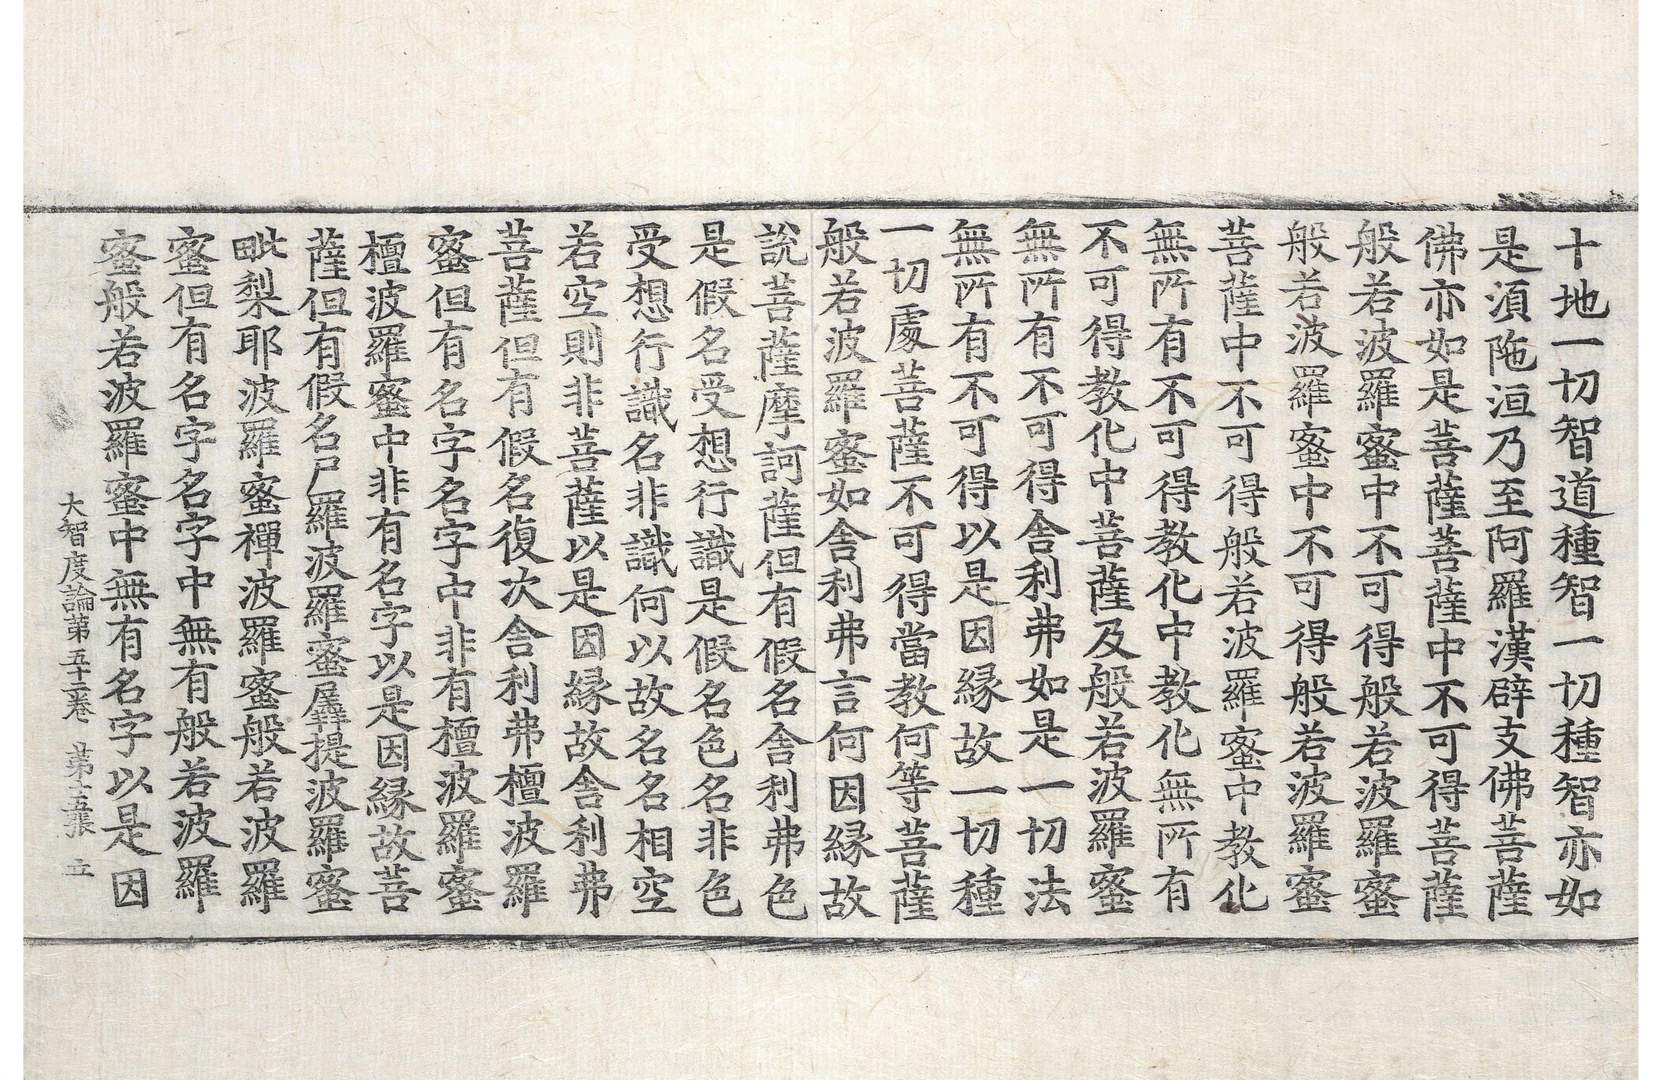 十地一切智道種智一切種智亦如
是湏陁洹乃至阿羅漢辟支佛菩薩
佛亦如是菩薩菩薩中不可得菩薩
般若波羅蜜中不可得般若波羅蜜
般若波羅蜜中不可得般若波羅蜜
菩薩中不可得般若波羅蜜中教化
無所有不可得教化中教化無所有
不可得教化中菩薩及般若波羅蜜
無所有不可得舎利弗如是一切法
無所有不可得以是因緣故一切種
一切處菩薩不可得當教何等菩薩
般若波羅蜜如舎利弗言何因緣故
說菩薩摩訶薩但有假名舎利弗色
是假名受想行識是假名色名非色
受想行識名非識何以故名名相空
若空則非菩薩以是因緣故舎利弗
菩薩但有假名復次舎利弗檀波羅
蜜但有名字名字中非有檀波羅蜜
檀波羅蜜中非有名字以是因緣故菩
薩但有假名尸羅波羅蜜羼提波羅蜜
毗梨耶波羅蜜禪波羅蜜般若波羅
蜜但有名字名字中無有般若波羅
蜜般若波羅蜜中無有名字以是因
大智度論第五十二卷 第十五張 立